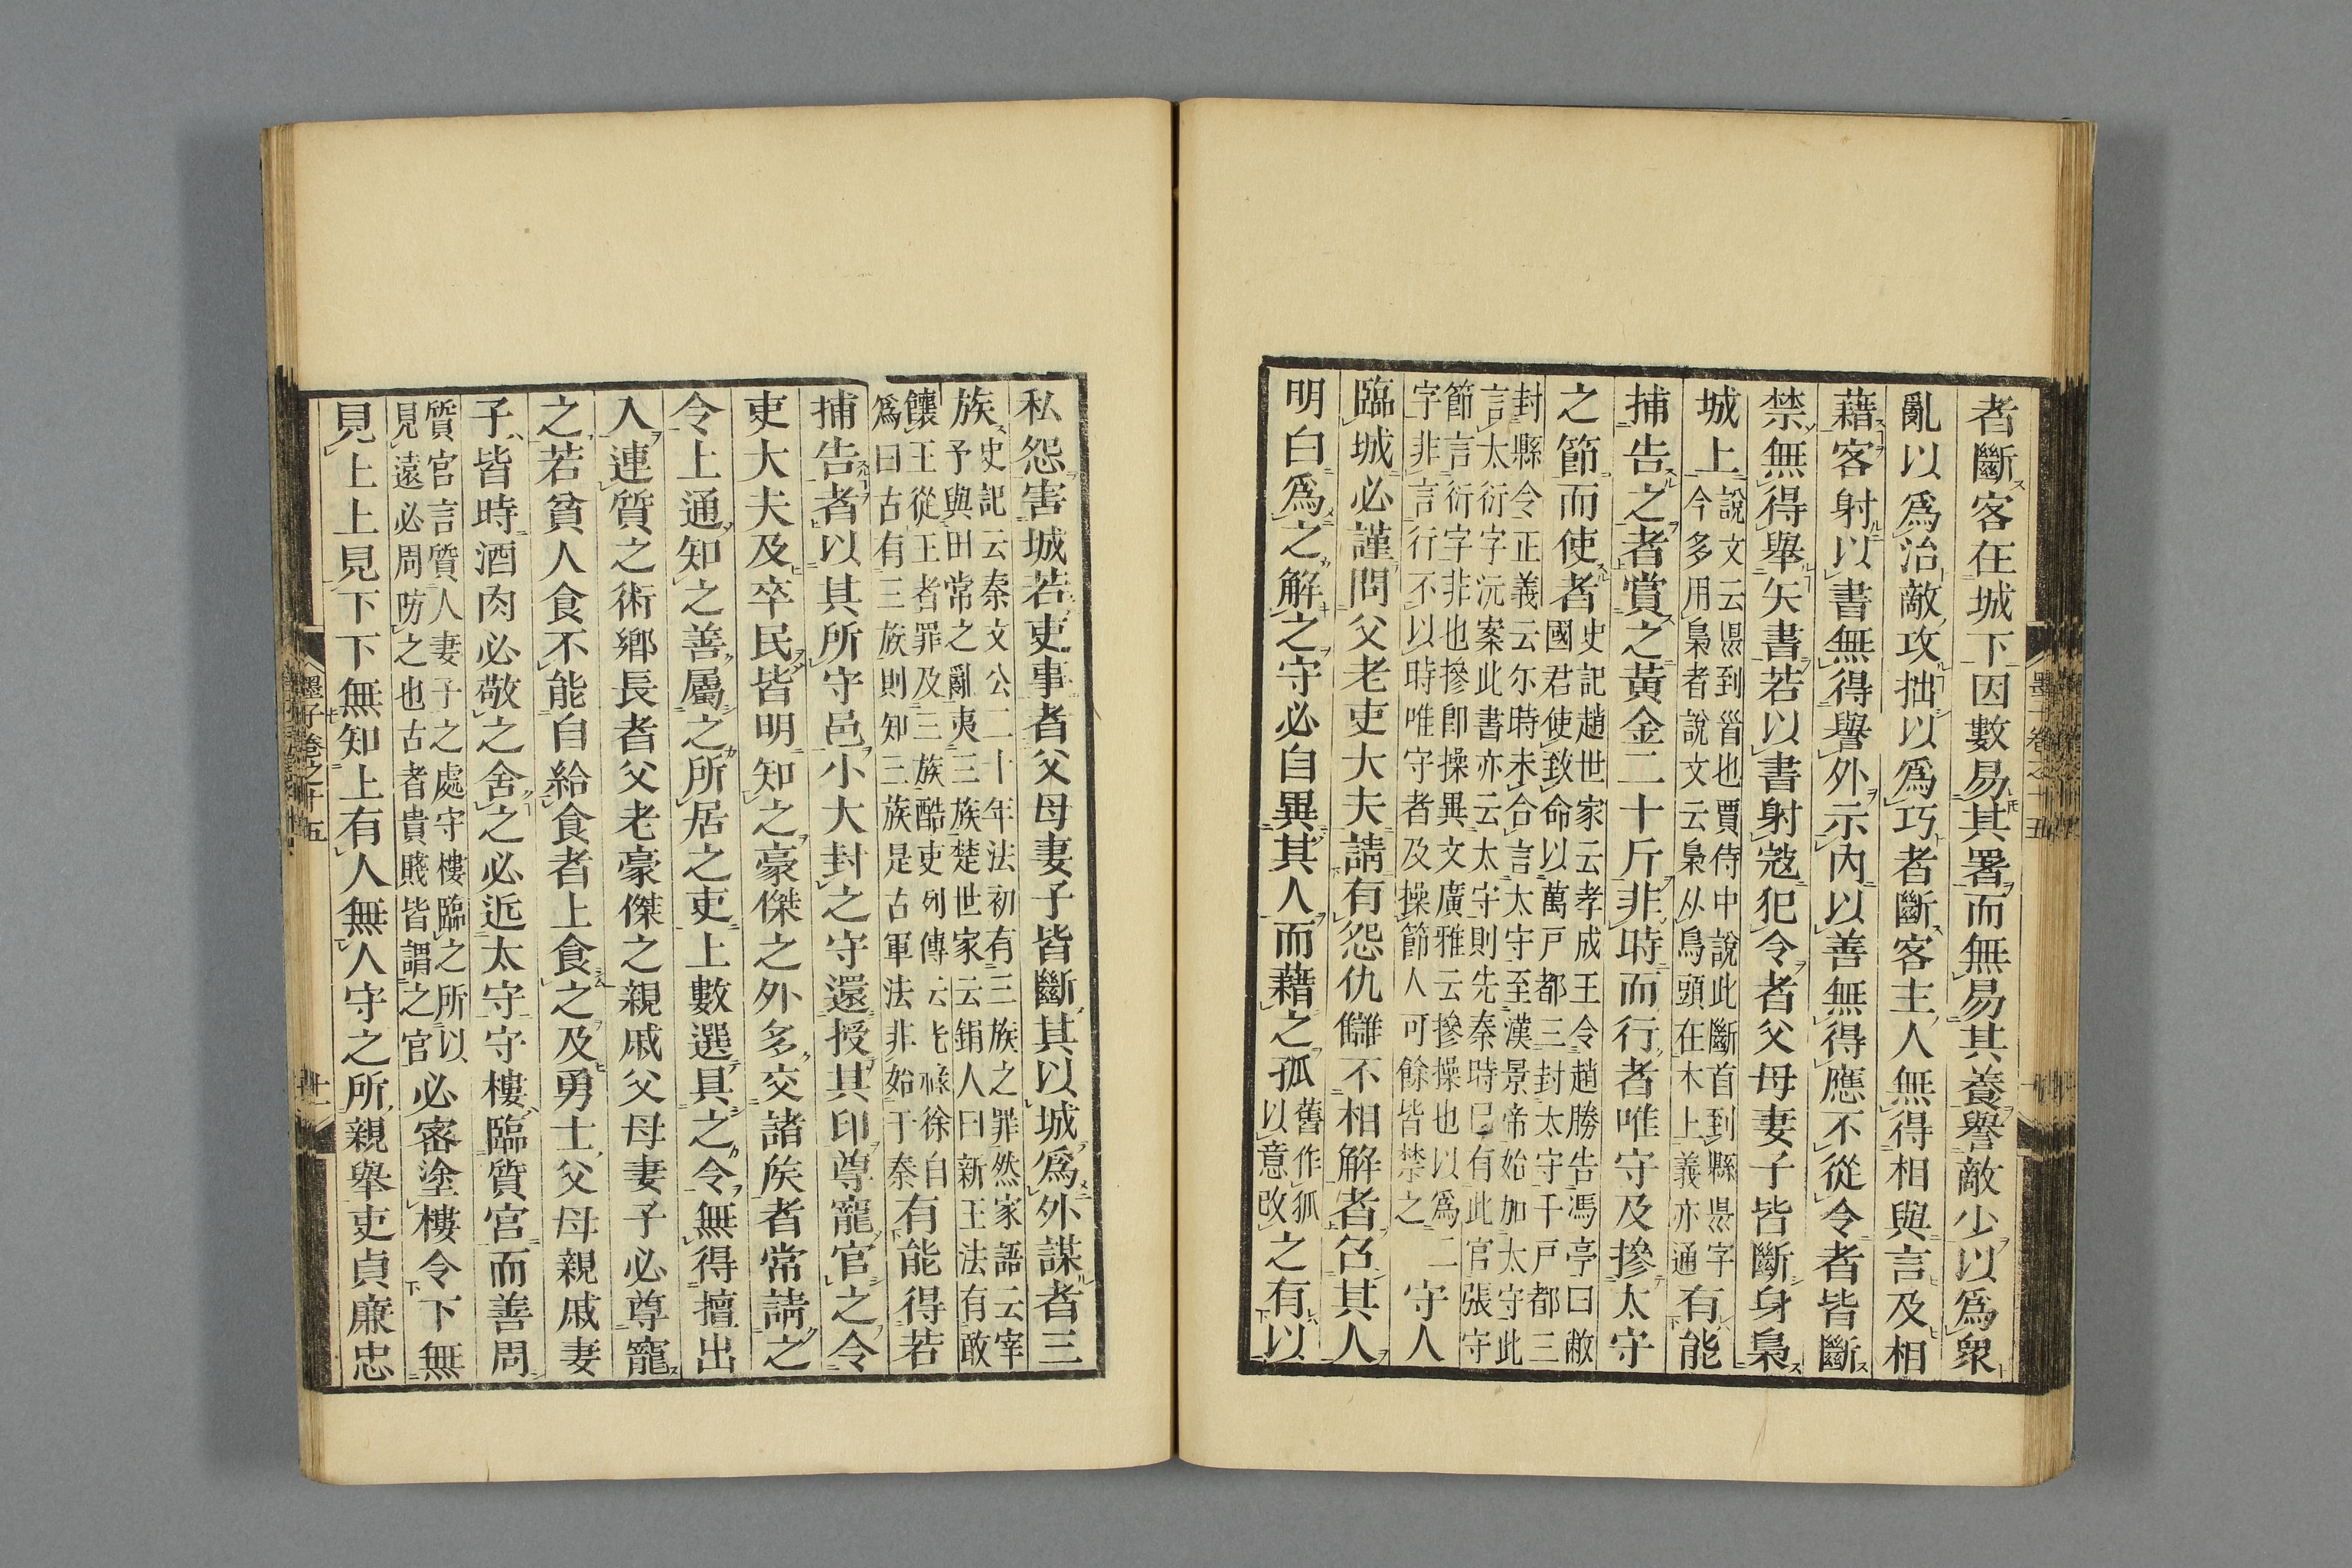 者斷客在城下因數易其署而無易其養譽敵少以爲衆
亂以爲治敵攻拙以爲巧者斷客主人無得相與言及相
藉客射以書無得譽外示內以善無得應不從令者皆斷
禁無得舉矢書若以書射寇犯令者父母妻子皆斷身梟
城上
說文云県到𩠐也賈侍中說此斷首到縣県字
今多用梟者說文云梟从鳥頭在木上義亦通
有能
捕告之者賞之黃金二十斤非時而行者唯守及摻太守
之節而使者
史記趙世家云孝成王令趙勝告馮亭曰敝
國君使致命以萬戶都三封太守千戶都三
封縣令正義云尓時未合言太守至漢景帝始加太守此
言太衍字沅案此書亦云太守則先秦時已有此官張守
節言衍字非也摻卽操異文廣雅云摻操也以爲二
字非言行不以時唯守者及操節人可餘皆禁之
守人
臨城必謹問父老吏大夫請有怨仇讎不相解者召其人
明白爲之解之守必自異其人而藉之孤
舊作狐
以意改
之有以
私怨害城若吏事者父母妻子皆斷其以城爲外謀者三
族
史記云秦文公二十年法初有三族之罪然家語云宰
予與田常之亂夷三族楚世家云鋗人曰新王法有敢
饟王從王者罪及三族酷吏列傳云光祿徐自
爲曰古有三族則知三族是古軍法非始于秦
有能得若
捕告者以其所守邑小大封之守還授其印尊寵官之令
吏大夫及卒民皆明知之豪傑之外多交諸矦者常請之
令上通知之善屬之所居之吏上數選具之令無得擅出
入連質之術鄉長者父老豪傑之親戚父母妻子必尊寵
之若貧人食不能自給食者上食之及勇士父母親戚妻
子皆時酒肉必敬之舍之必近太守守樓臨質宮而善周
質宮言質人妻子之處守樓臨之所以
見遠必周防之也古者貴賤皆謂之宮
必密塗樓令下無
見上上見下下無知上有人無人守之所親舉吏貞廉忠
墨子卷之十五
廿一